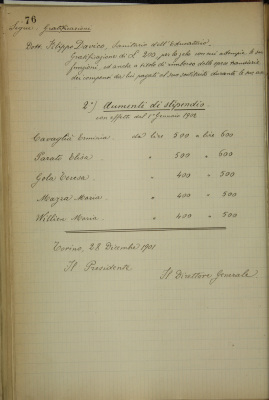 76
Segue Gratificazioni
Dott. Filippo Davico, Sanitario dell'Educatorio.
Gratificazione di L. 200 per lo zelo con cui adempie le sue
funzioni, ed anche a titolo di rimborso della spesa
dei compensi da lui pagati al suo sostituto durante le sue
2°) Aumenti di stipendio
con effetto dal 1° Gennaio 1902
Cavaglià Erminia. da lire 500 a lire 600
Parato Elisa " 500 " 600
Gola Teresa. " 400 " 500
Mazza Maria. " 400 " 500
Willien Maria. " 400 " 500
Torino, 28 Dicembre 1901.
Il Presidente
Il Direttore Generale